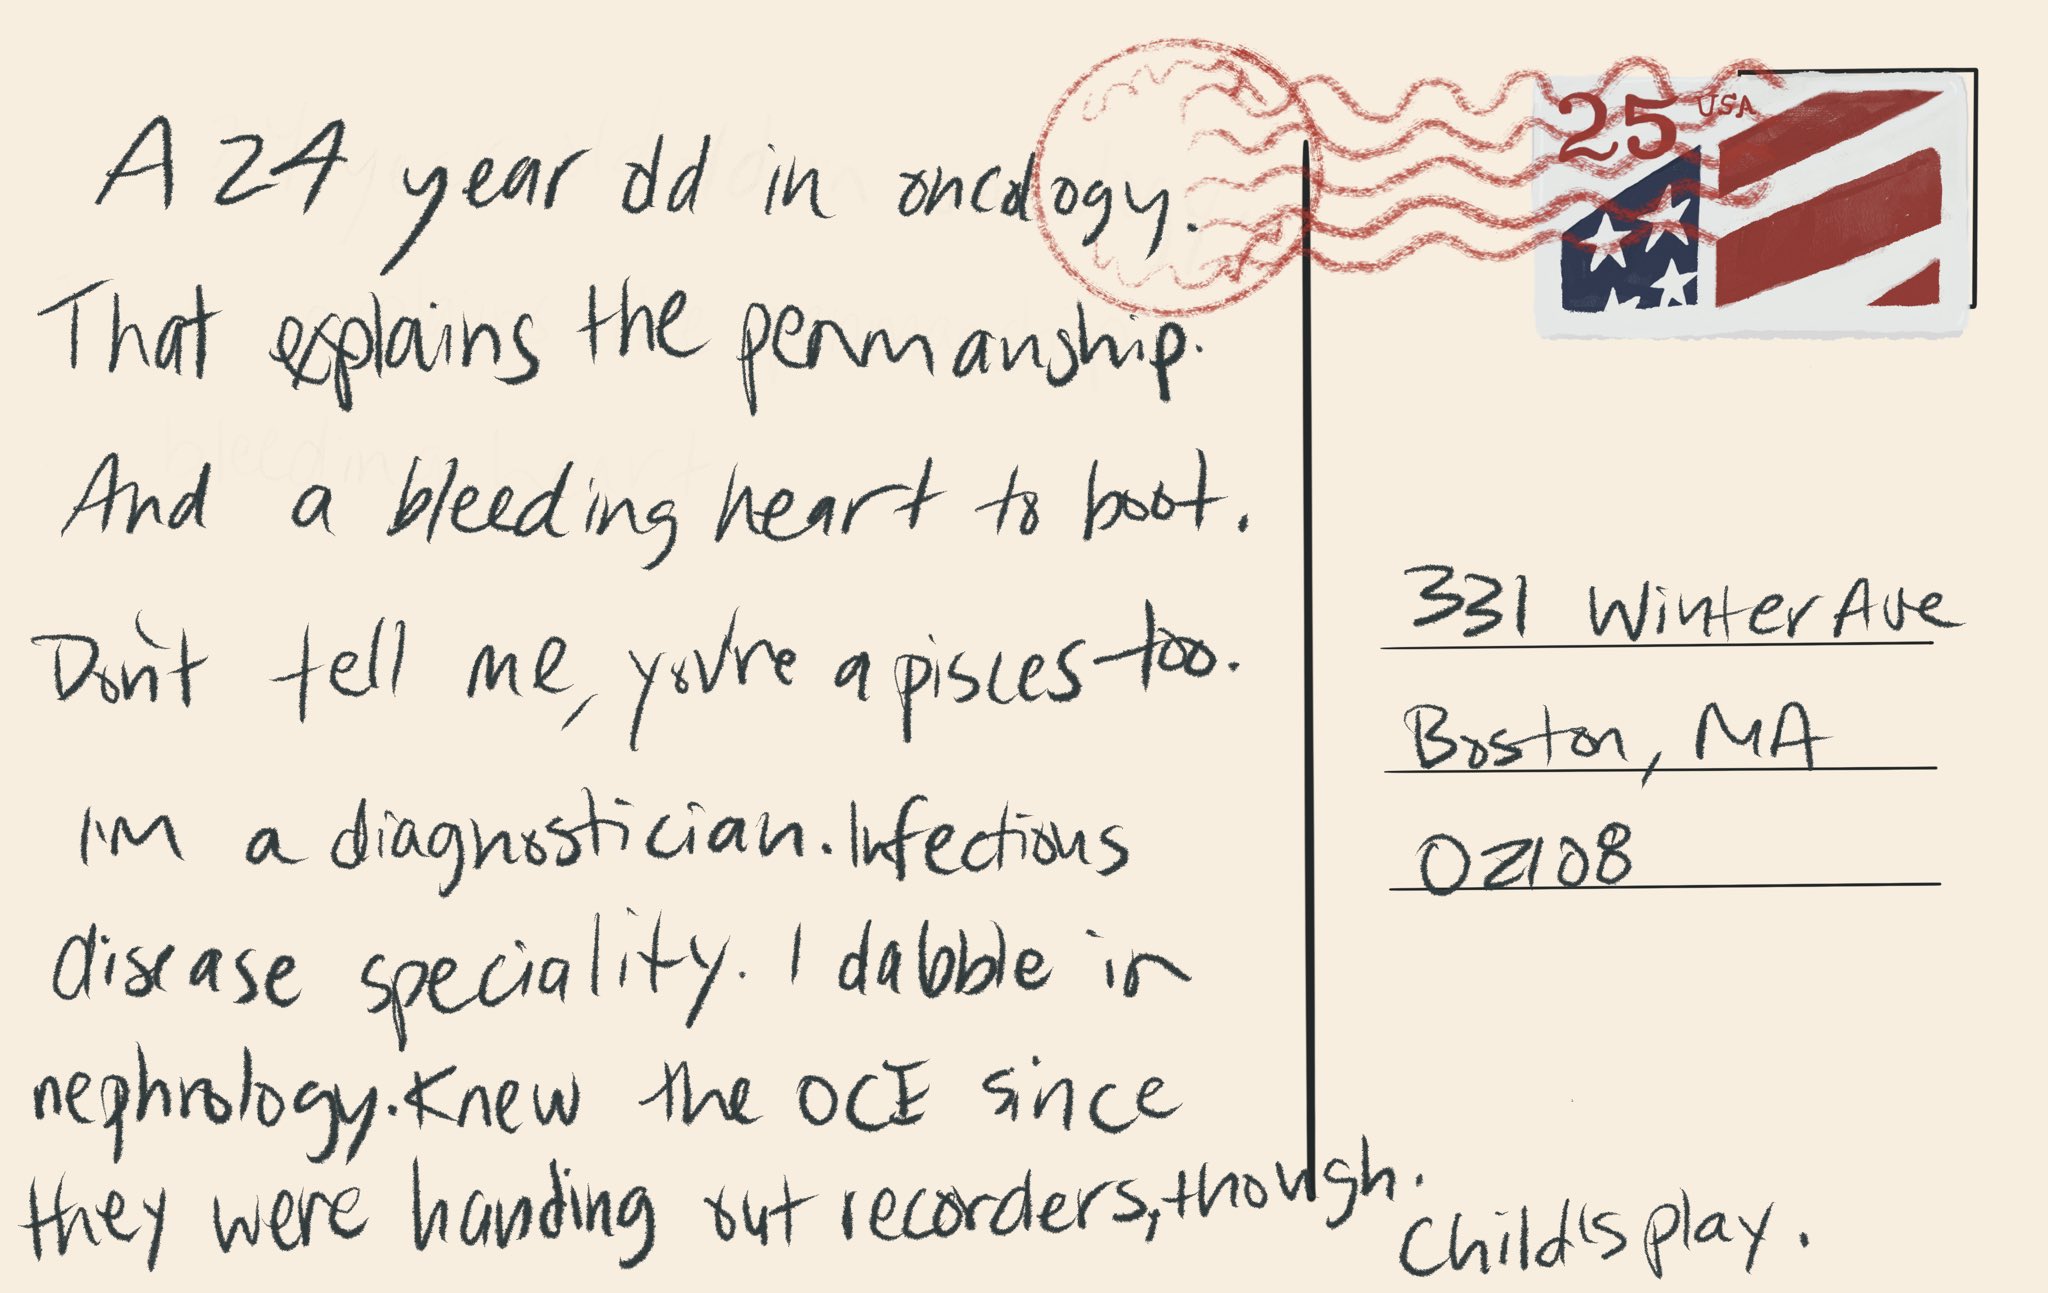 A 24 year old in oncology.
That explains the penmanship.
And a bleeding heart to boot.
Don't tell me, you're a pisces too.
I'm a diagnostician. Infectious
disease speciality. I dabble in
nephrology. Knew the OCE since
they were handing out recorders, though.
Child's play.
25 USA
331 Winter Ave
Boston, MA
02108